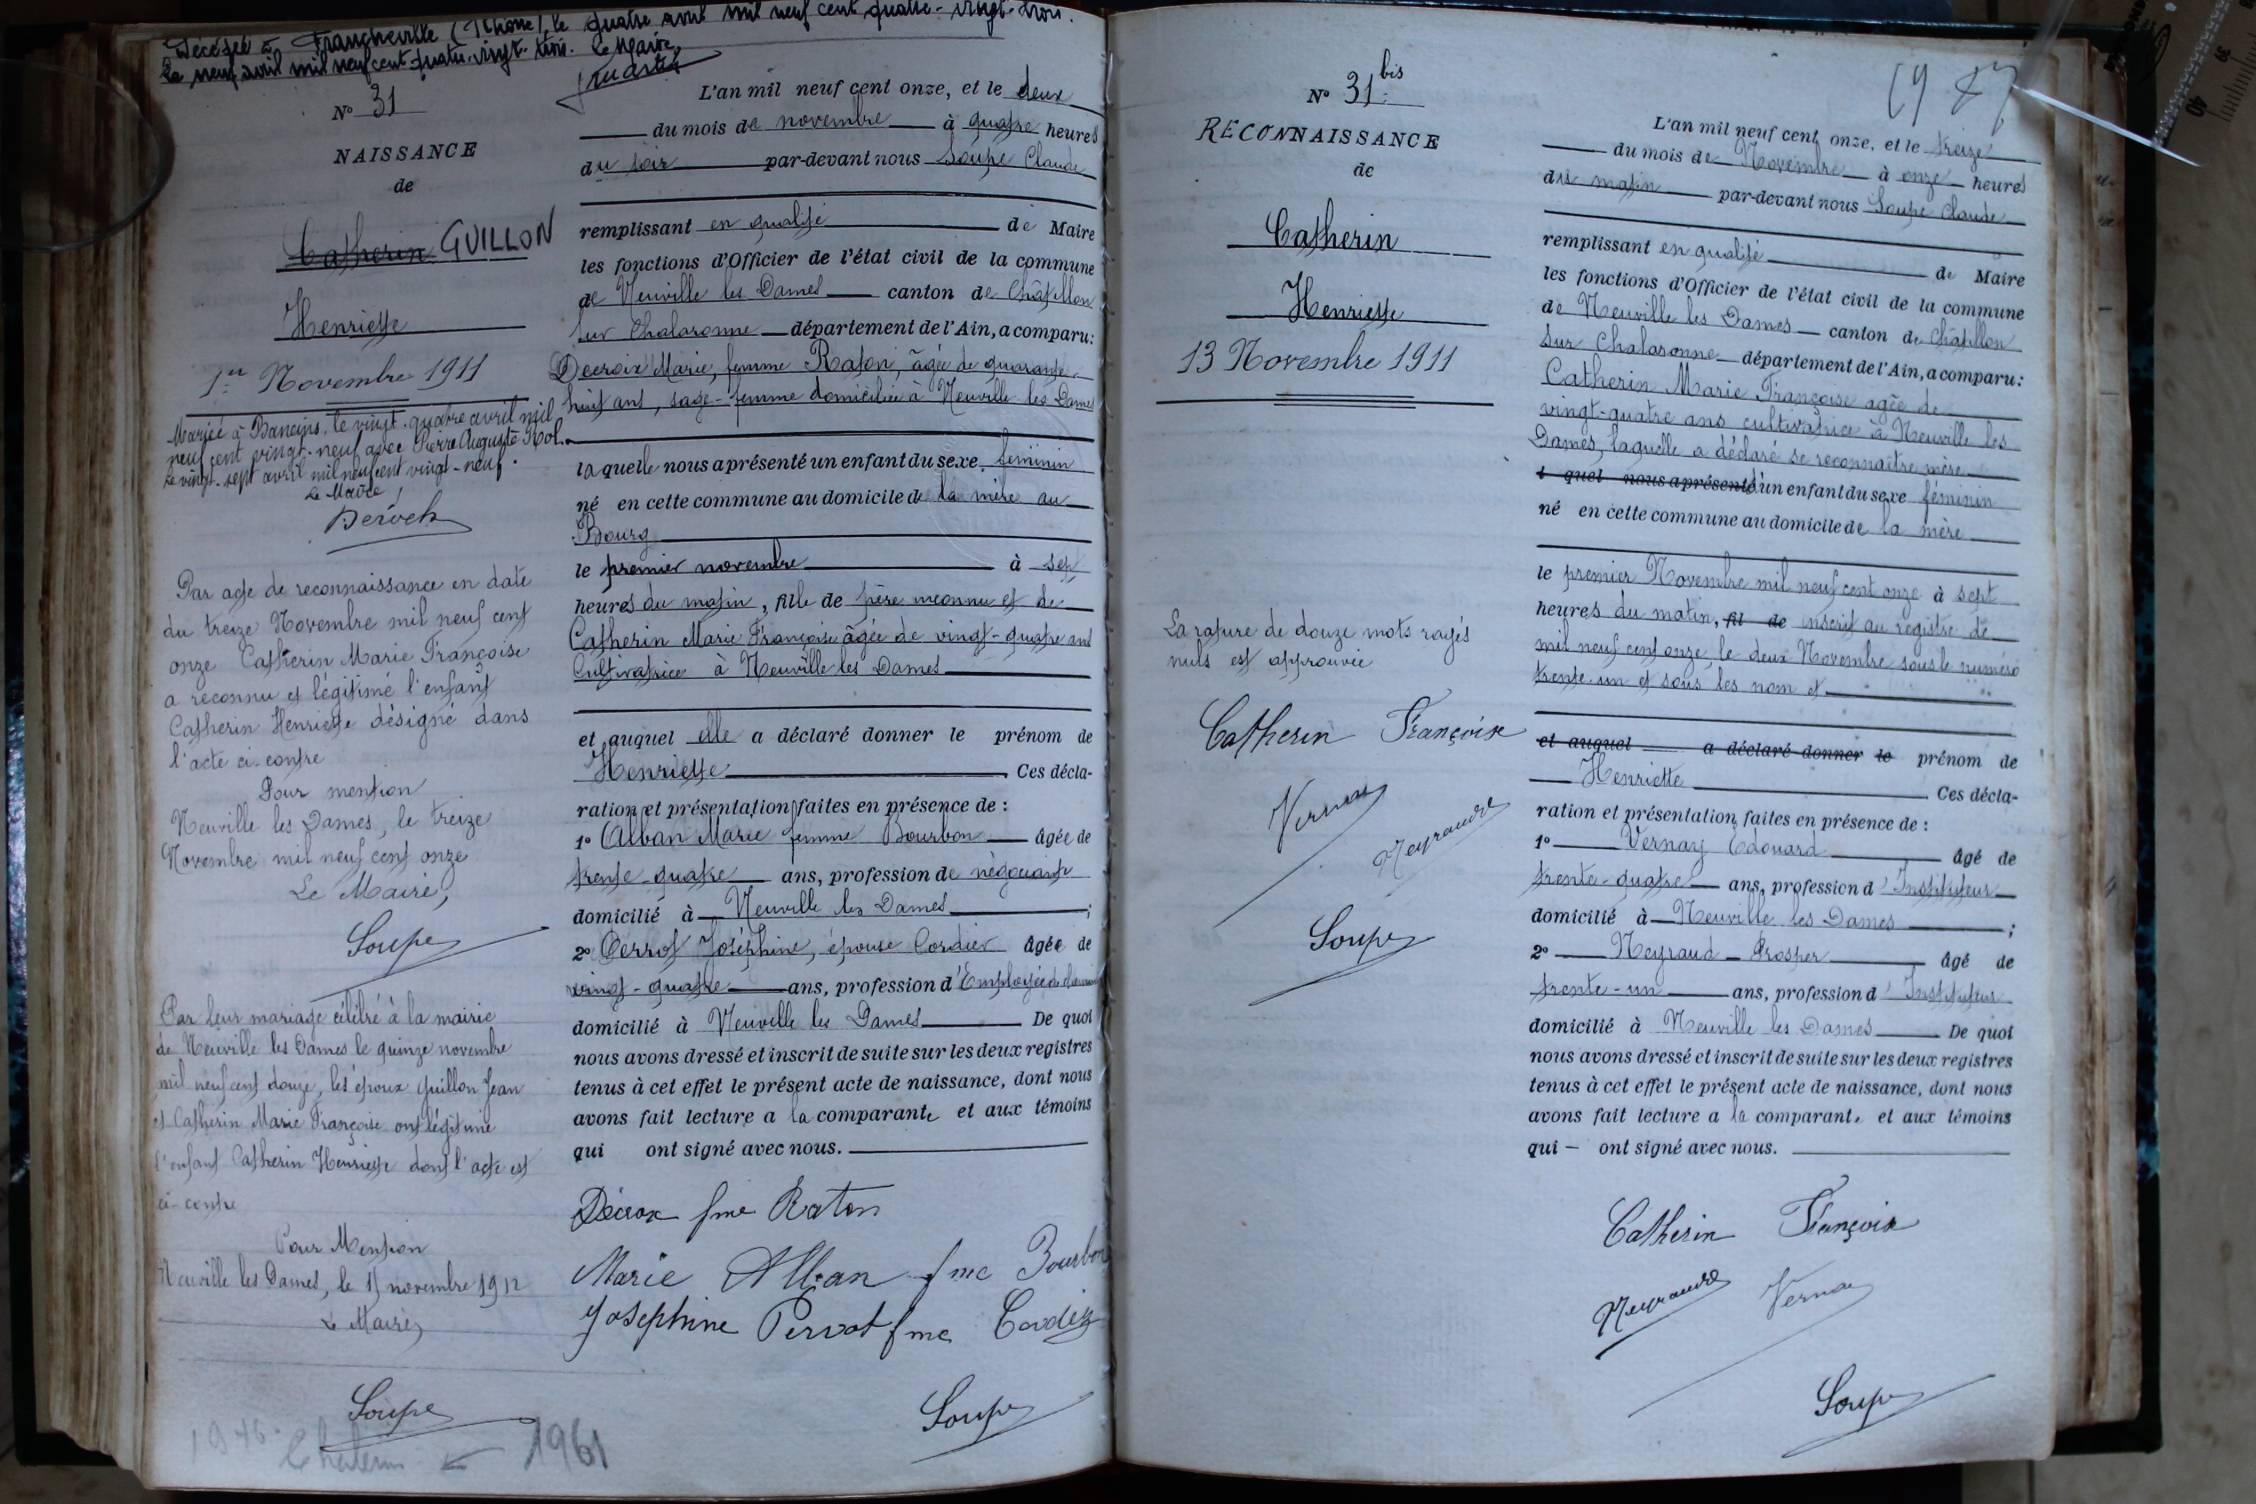 Décédée à Francheville (Rhône), le quatre avril mil neuf cent quatre-vingt-trois.
Le neuf avril mil neuf cent quatre-vingt-trois. Le Maire,
N° 31
NAISSANCE
de
Catherin GUILLON
Henriette
1er Novembre 1911
Mariée à Baneins, le vingt-quatre avril mil
neuf cent vingt-neuf avec Pierre Auguste Rol.
Le vingt-sept avril mil neuf cent vingt-neuf.
Le Maire,
Par acte de reconnaissance en date
du treize Novembre mil neuf cent
onze Catherin Marie Françoise
a reconnu et légitimé l'enfant
Catherin Henriette désigné dans
l'acte ci-contre
Pour mention
Neuville les Dames, le treize
Novembre mil neuf cent onze
Le Maire,
Soupe
Par leur mariage célébré à la mairie
de Neuville les Dames le quinze novembre
mil neuf cent douze, les époux Guillon Jean
et Catherin Marie Françoise ont légitimé
l'enfant Catherin Henriette dont l'acte est
ci-contre
Pour Mention
Neuville les Dames, le 15 novembre 1912
Le Maire,
Soupe
1946
1961
L'an mil neuf cent onze, et le deux
du mois de novembre à quatre heures
du soir par-devant nous Soupe Claude
remplissant en qualité de Maire
les fonctions d'Officier de l'état civil de la commune
de Neuville les Dames canton de Châtillon
sur Chalaronne département de l'Ain, a comparu:
Decroix Marie, femme Raton, âgée de quarante-
huit ans, sage-femme domiciliée à Neuville les Dames
laquelle nous a présenté un enfant du sexe féminin
né en cette commune au domicile de la mère au
Bourg
le premier novembre à sept
heures du matin, fille de père inconnu et de
Catherin Marie Françoise âgée de vingt-quatre ans
Cultivatrice à Neuville les Dames
et auquel elle a déclaré donner le prénom de
Henriette Ces décla-
ration et présentation faites en présence de :
1° Alban Marie femme Bourbon âgée de
trente-quatre ans, profession de négociant
domicilié à Neuville les Dames ;
2° Perrot Joséphine, épouse Cordier âgée de
vingt-quatre ans, profession d'Employée de
domicilié à Neuville les Dames De quoi
nous avons dressé et inscrit de suite sur les deux registres
tenus à cet effet le présent acte de naissance, dont nous
avons fait lecture a la comparante et aux témoins
qui ont signé avec nous.
Décroix fme Raton
Marie Alban fme Bourbon
Joséphine Perrot fme Cordier
Soupe
N° 31 bis
RECONNAISSANCE
de
Catherin
Henriette
13 Novembre 1911
La rature de douze mots rayés
nuls est approuvée
Catherin Françoise
Vernay
Neyraud
Soupe
L'an mil neuf cent onze, et le treize
du mois de Novembre à onze heures
du matin par-devant nous Soupe Claude
remplissant en qualité de Maire
les fonctions d'Officier de l'état civil de la commune
de Neuville les Dames canton de Châtillon
sur Chalaronne département de l'Ain, a comparu:
Catherin Marie Françoise agée de
vingt-quatre ans cultivatrice à Neuville les
Dames, laquelle a déclaré se reconnaître mère
l quel nous a présenté d'un enfant du sexe féminin
né en cette commune au domicile de la mère
le premier Novembre mil neuf cent onze à sept
heures du matin, fil de inscrit au registre de
mil neuf cent onze, le deux Novembre sous le numéro
trente-un et sous les nom et
et auquel a déclaré donner le prénom de
Henriette Ces décla-
ration et présentation faites en présence de :
1° Vernay Edouard âgé de
trente-quatre ans, profession d'Instituteur
domicilié à Neuville les Dames ;
2° Neyraud Prosper âgé de
trente-un ans, profession d'Instituteur
domicilié à Neuville les Dames De quoi
nous avons dressé et inscrit de suite sur les deux registres
tenus à cet effet le présent acte de naissance, dont nous
avons fait lecture a la comparante et aux témoins
qui ont signé avec nous.
Catherin Françoise
Neyraud Vernay
Soupe